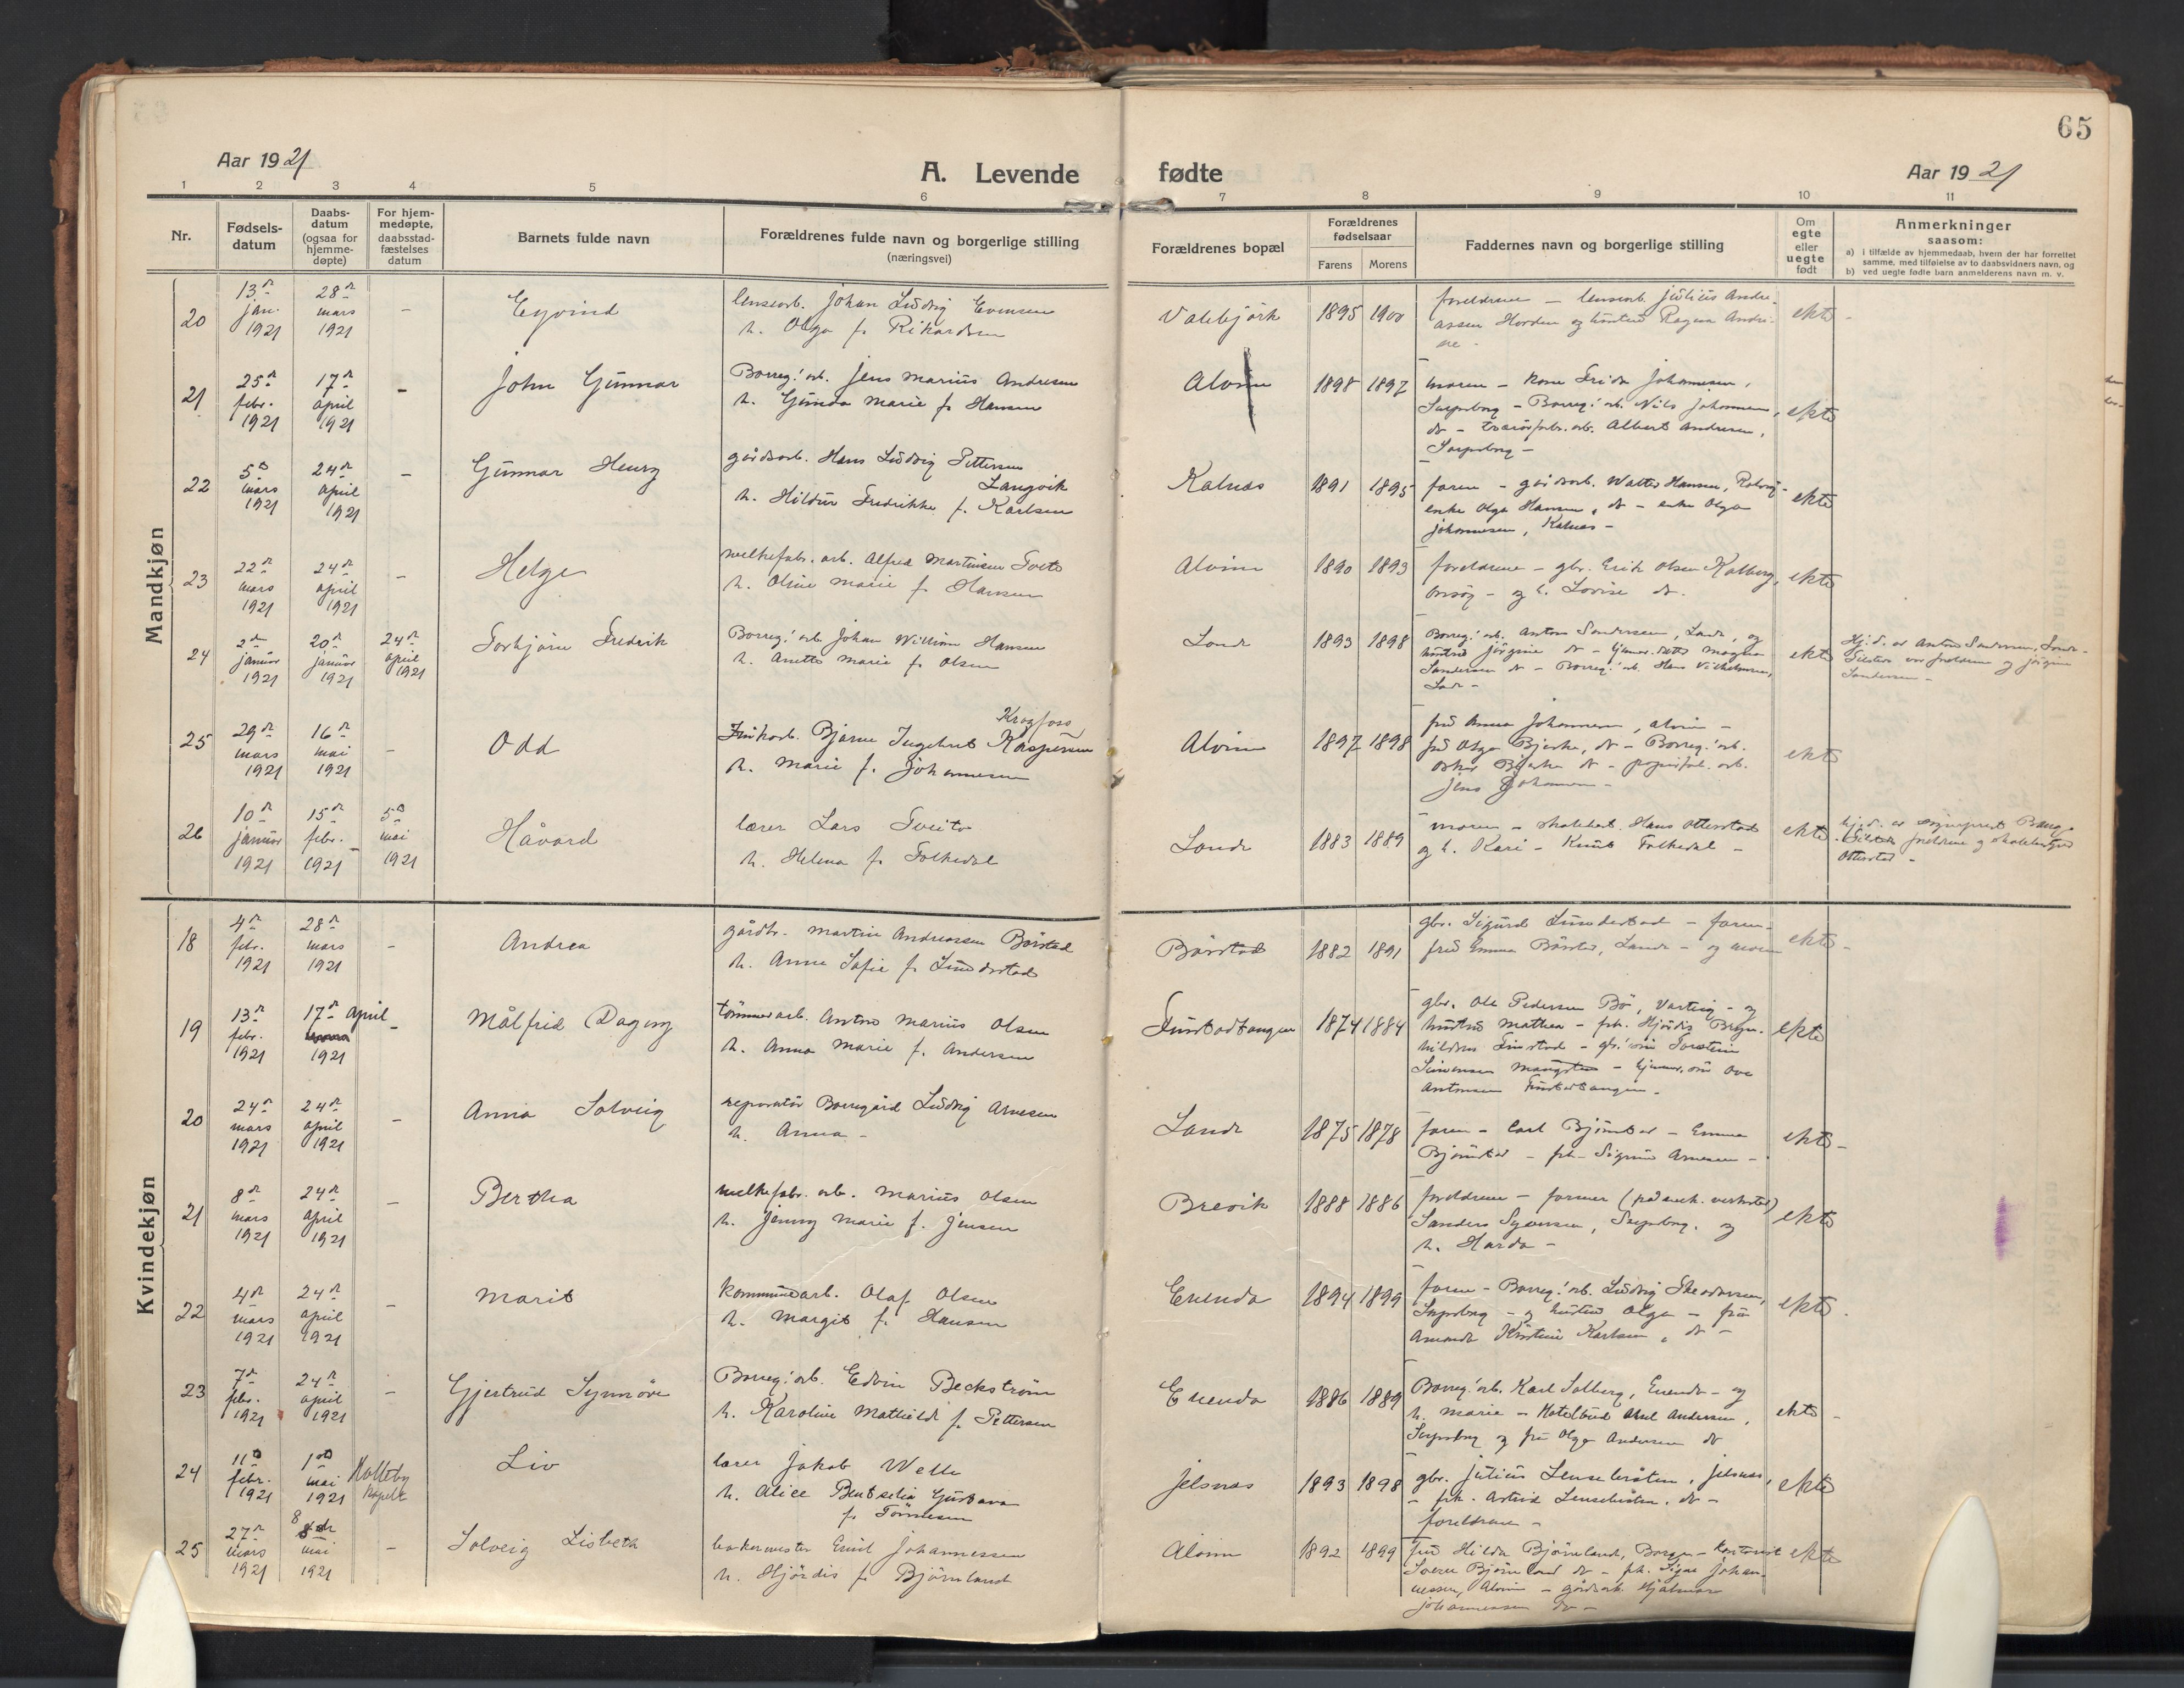 65
Aar 1921
A. Levende fødte
Aar 1921
1 2 3 4 5 6 7 8 9 10 11
Nr.
Fødsels-
datum
Daabs-
datum
(ogsaa for
hjemme-
døpte)
For hjem-
medøpte,
daabsstad-
fæstelses
datum
Barnets fulde navn
Forældrenes fulde navn og borgerlige stilling
(næringsvei)
Forældrenes bopæl
Forældrenes
fødselsaar
Farens Morens
Faddernes navn og borgerlige stilling
Om
egte
eller
uegte
født
Anmerkninger
saasom:
a) i tilfælde av hjemmedaab, hvem der har forrettet
samme, med tilføielse av to daabsvidners navn, og
b) ved uegte fødte barn anmelderens navn m. v.
Mandkjøn
20
13de jan. 1921
28de mars 1921
-
Eyvind
lensearb. Johan Ludvig Evensen
h. Olga f. Rikardsen
Valebjørk
1895 1900
foreldrene - lensearb. Julius Andre-
assen Horden og hustru Ragna Andri-
ne -
ekte -
21
25de febr. 1921
17de april 1921
-
John Gunnar
Borreg.' arb. Jens Marius Andresen
h. Gunda Marie f. Hansen
Alvim
1898 1897
moren - kone Frida Johannesen,
Sarpsborg - Borreg.' arb. Nils Johannesen,
do - arb. Albert Andresen,
Sarpsborg -
ekte
22
5te mars 1921
24de april 1921
-
Gunnar Henry
gårdsarb. Hans Ludvig Pettersen
Langvik
h. Hildur Fredrikke f. Karlsen
Kalnæs
1891 1895
faren - gårdsarb. Walter Hansen,
enke Olga Hansen, do - enke Olga
Johannesen, Kalnæs -
ekte
23
22de mars 1921
24de april 1921
-
Helge
melkefabr. arb. Alfred Martinsen Tveto
h. Oline Marie f. Hansen
Alvim
1890 1893
foreldrene - gbr. Erik Olsen Kolberg,
og h. Lovise do.
ekte
24
2den januar 1921
20de januar 1921
24de april 1921
Torbjørn Fredrik
Borreg.' arb. Johan William Hansen
h. Anette Marie f. Olsen
Lande
1893 1898
Borreg.' arb. Anton Sandersen, Lande, og
hustru Jørgine do - hjemv. datter Magna
Sandersen do - Borreg.' arb. Hans Vilhelmsen,
Lande -
ekte
Hj. d. av Anton Sandersen, Lande -
foreldrene og Jørgine
Sandersen -
25
29de mars 1921
16de mai 1921
-
Odd
Krogfoss
Bjarne Ingebret Kaspersen
h. Marie f. Johannesen
Alvim
1897 1898
fru Anna Johannesen, Alvim -
fru Olga Bjerke, do - Borreg.' arb.
Oskar Bjerke do - papirfabr. arb.
Jens Johannesen -
ekte
26
10de januar 1921
15de febr. 1921
5te mai 1921
Håvard
lærer Lars Tveito
h. Helena f. Folkedal
Lande
1883 1889
moren - skolebest. Hans Otterstad
og h. Kari - Knut Folkedal -
ekte
hj. d. av sogneprest Bang.
foreldrene og skolebestyrer
Otterstad -
Kvindekjøn
18
4de febr. 1921
28de mars 1921
-
Andrea
gårdbr. Martin Andreassen Börstad
h. Anna Sofie f. Lundestad
Börstad
1882 1891
gbr. Sigurd Lundestad - faren -
fru Emma Börstad, Lande - og moren
ekte -
19
13de febr. 1921
17de april 1921
-
Målfrid Dagny
tømmerarb. Anton Marius Olsen
h. Anna Marie f. Andersen
Tunstadtangen
1874 1884
gbr. Ole Pedersen Bö, Varteig - og
hustru Mathea - frk. Hjördis Bryn-
hildsen Tunstad - Torstein
Simensen - hjemv. sön Ove
Antonsen Tunstadtangen -
ekte
20
24de mars 1921
24de april 1921
-
Anna Solveig
reparatör Borregård Ludvig Arnesen
h. Anna -
Lande
1875 1878
faren - Carl Björnstad - Emma
Björnstad - frk. Signe Arnesen -
ekte -
21
8de mars 1921
24de april 1921
-
Bertha
melkefabr. arb. Marius Olsen
h. Jenny Marie f. Jensen
Brevik
1888 1886
foreldrene - former (på mek. verksted)
Sanders Syversen, Sarpsborg, og
h. Harda -
ekte
22
4de mars 1921
24de april 1921
-
Marit
kommunearb. Olaf Olsen
h. Margit f. Hansen
Enenda
1894 1899
faren - Borreg.' arb. Ludvig Theodorsen,
Sarpsborg - og hustru Olga - fru
Amanda Kristine Karlsen, do -
ekte.
23
7de febr. 1921
24de april 1921
-
Gjertrud Synnöve
Borreg.' arb. Edvin Beckström
h. Karoline Mathilde f. Pettersen
Enenda
1886 1889
Borreg.' arb. Karl Solberg, Enenda - og
h. Marie - Hotelbud Axel Andersen,
Sarpsborg og fru Olga Andersen do
ekte -
24
11te febr. 1921
1ste mai 1921
Holleby kapel
Liv
lærer Jakob Welle
h. Alice Bentselia Gustava
f. Tönnesen
Jelsnæs
1893 1898
gbr. Julius, Jelsnæs,
- frk. Astrid, do -
foreldrene -
ekte
25
27de mars 1921
8de mai 1921
-
Solveig Lisbeth
bakermester Emil Johannessen
h. Hjördis f. Björnland
Alvim
1892 1899
fru Hilda Björnland, Borgen - kontorist
Sverre Björnland do - frk. Signe Johan-
nessen, Alvim - gårdsarb. Hjalmar
Johannessen do -
ekte